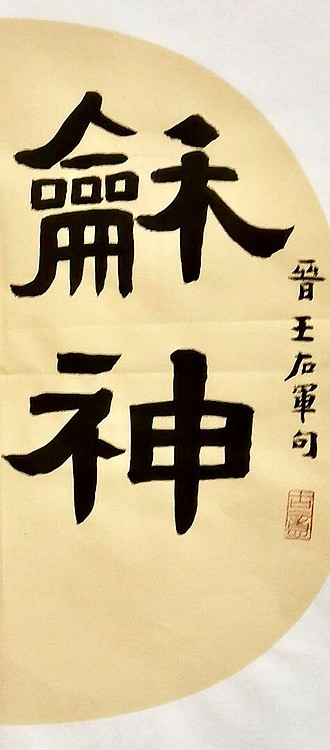 晉王右軍句
龢神